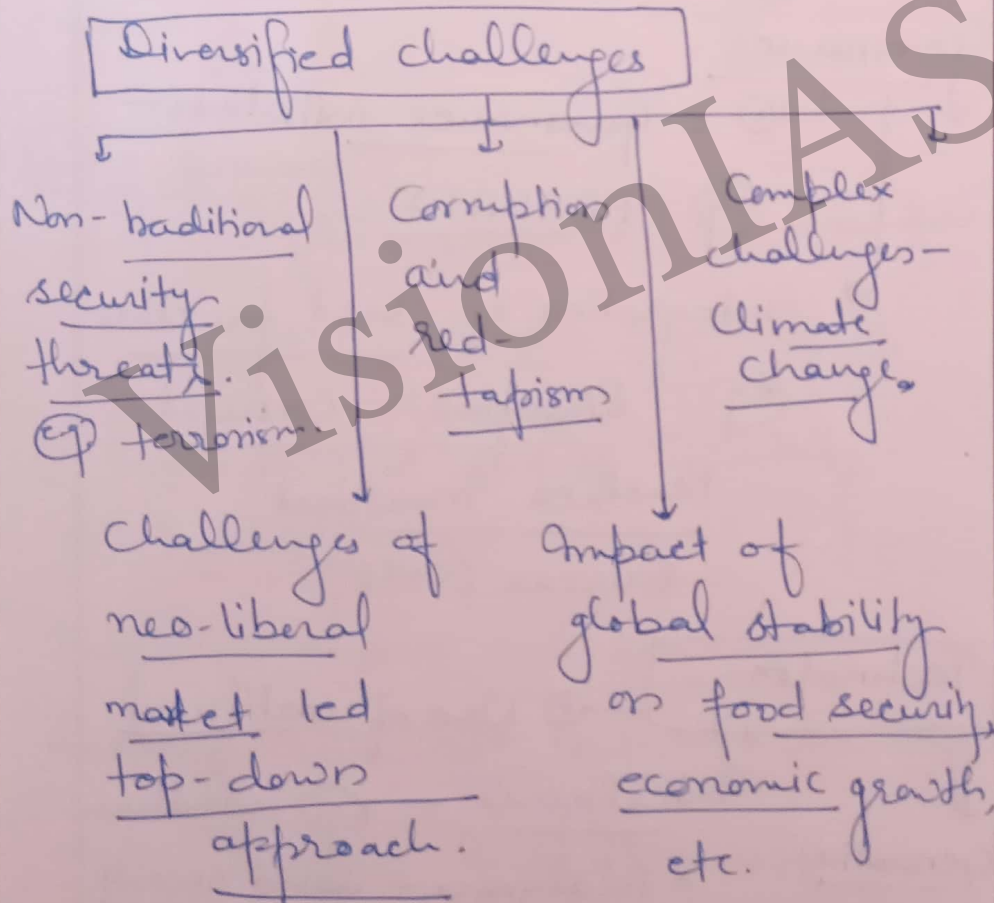 Diversified challenges
Non-traditional
security
threats.
eg) terrorism.
Corruption
and
red-
tapism
Complex
challenges-
Climate
change.
Challenges of
neo-liberal
market led
top-down
approach.
Impact of
global stability
on food security,
economic growth,
etc.
VisionIAS